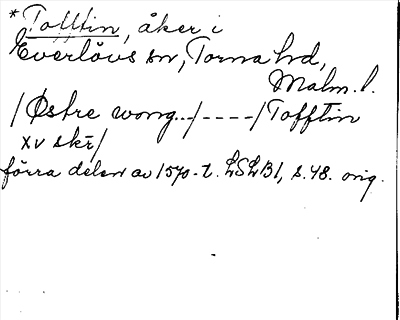 *Tofftin, åker i
Everlövs sn, Torna hd,
Malm. l.
/Østre wong../----/Tofftin
xv skr/
förra delen av 1570-t. LSLB1, s. 48. orig.